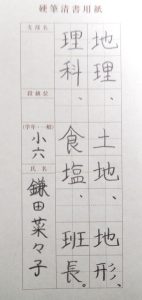 硬筆清書用紙
地理、土地、地形、
理科、食塩、班長。
支部名
段級位
(学年・一般)
小六
氏名
鎌田菜々子